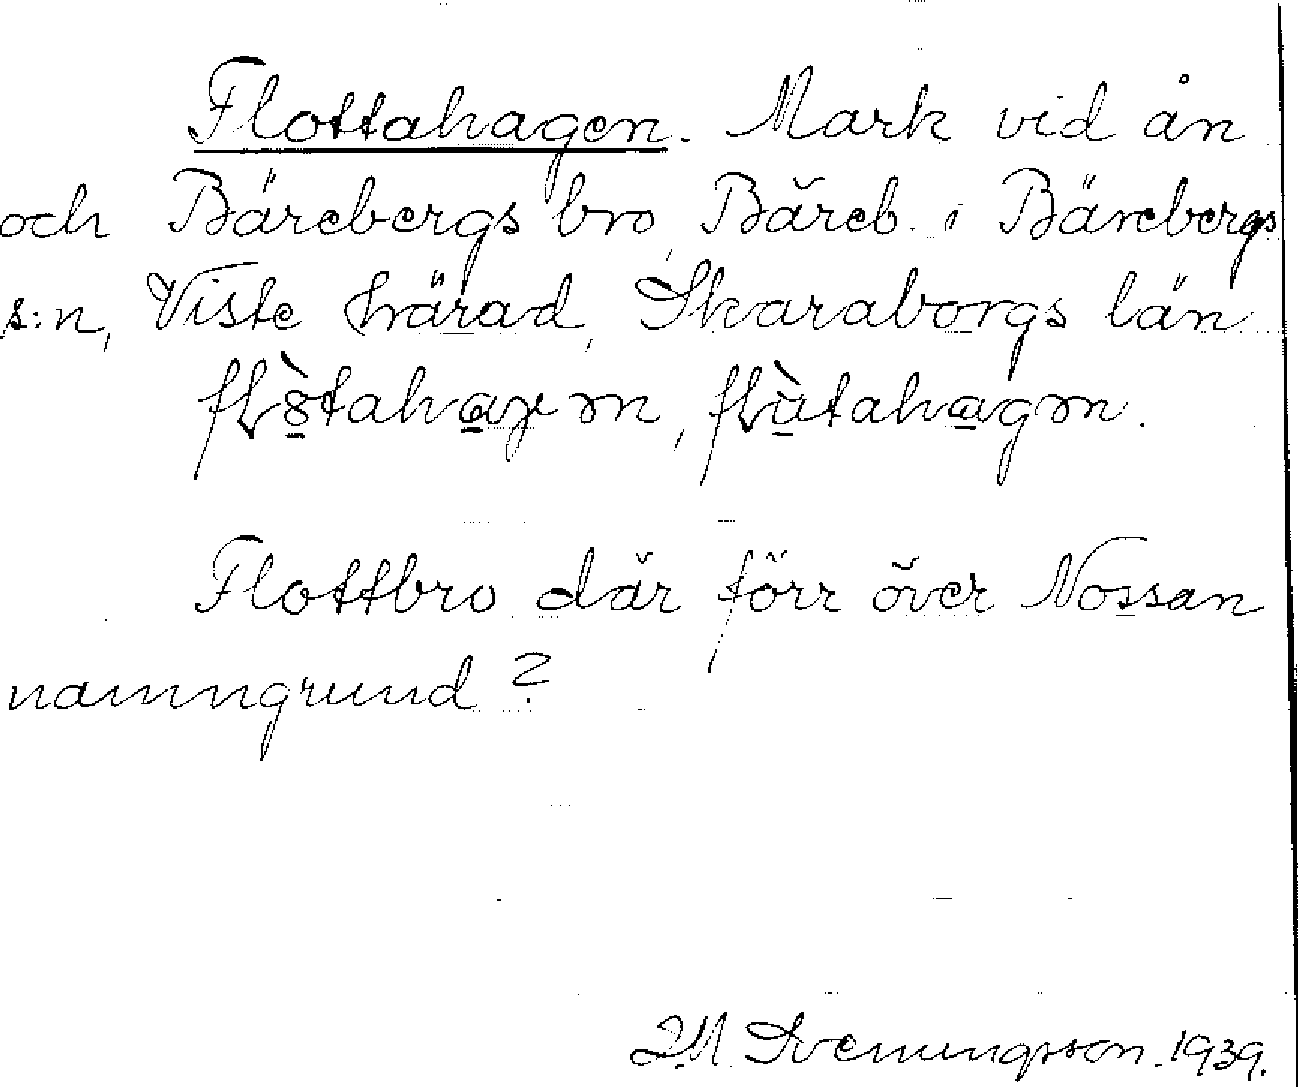 Flottahagen. Mark vid ån
och Bärebergs bro, Bäreb. i Bärebergs
s:n, Viste härad, Skaraborgs län.
Flottbro där förr över Nossan
namngrund?
Svenungsson. 1939.